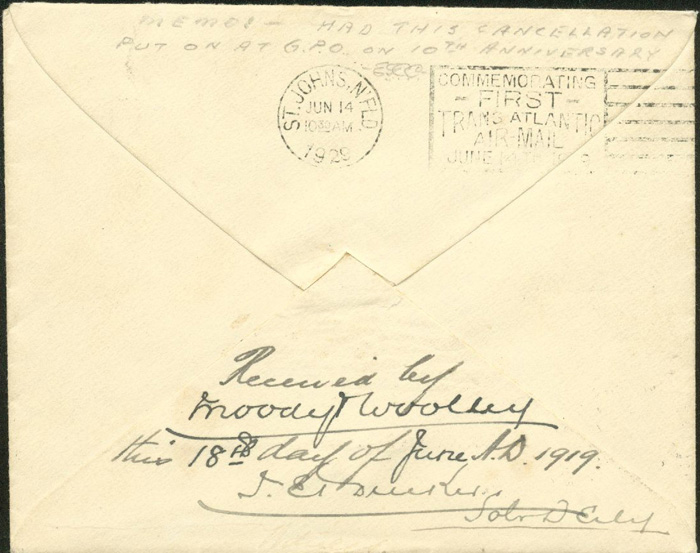 MEMO:- HAD THIS CANCELLATION
PUT ON AT G.P.O. ON 10TH ANNIVERSARY
ST. JOHNS, N'FLD
JUN 14
1030 AM
1929
COMMEMORATING
- FIRST -
TRANS-ATLANTIC
AIR-MAIL
JUNE
Received by
Moody & Woolley
this 18th day of June A.D. 1919.